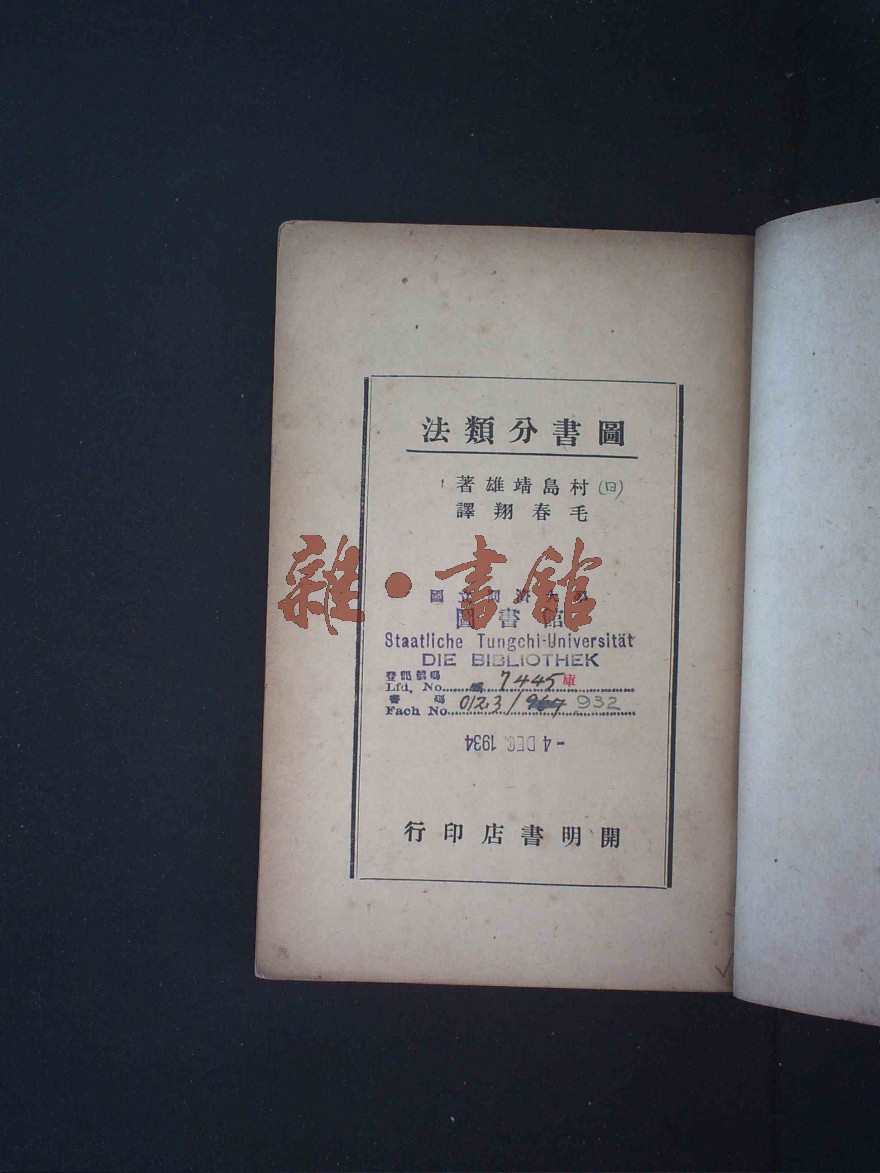 圖書分類法
(日)村島靖雄著
毛春翔譯
雜·書館
圖書館
Staatliche Tungchi-Universität
DIE BIBLIOTHEK
登記號碼
Lfd. No. 7445 庫
書碼
Fach No. 012.3/967 932
-4 DEC. 1934
開明書店印行